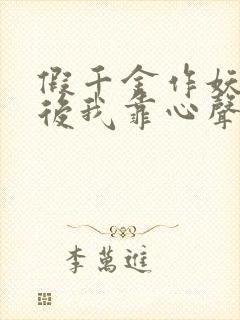 假千金作妖
後我靠心聲
李萬進